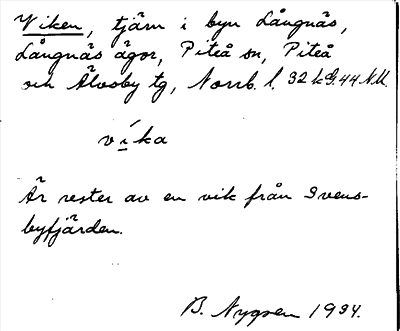 Viken, tjärn i byn Långnäs,
Långnäs ägor, Piteå sn, Piteå
och Älvsby tg, Norrb. l. 32 kG. 44 N.U.
víka
Är rester av en vik från Svens-
byfjärden.
B. Nygren 1934.